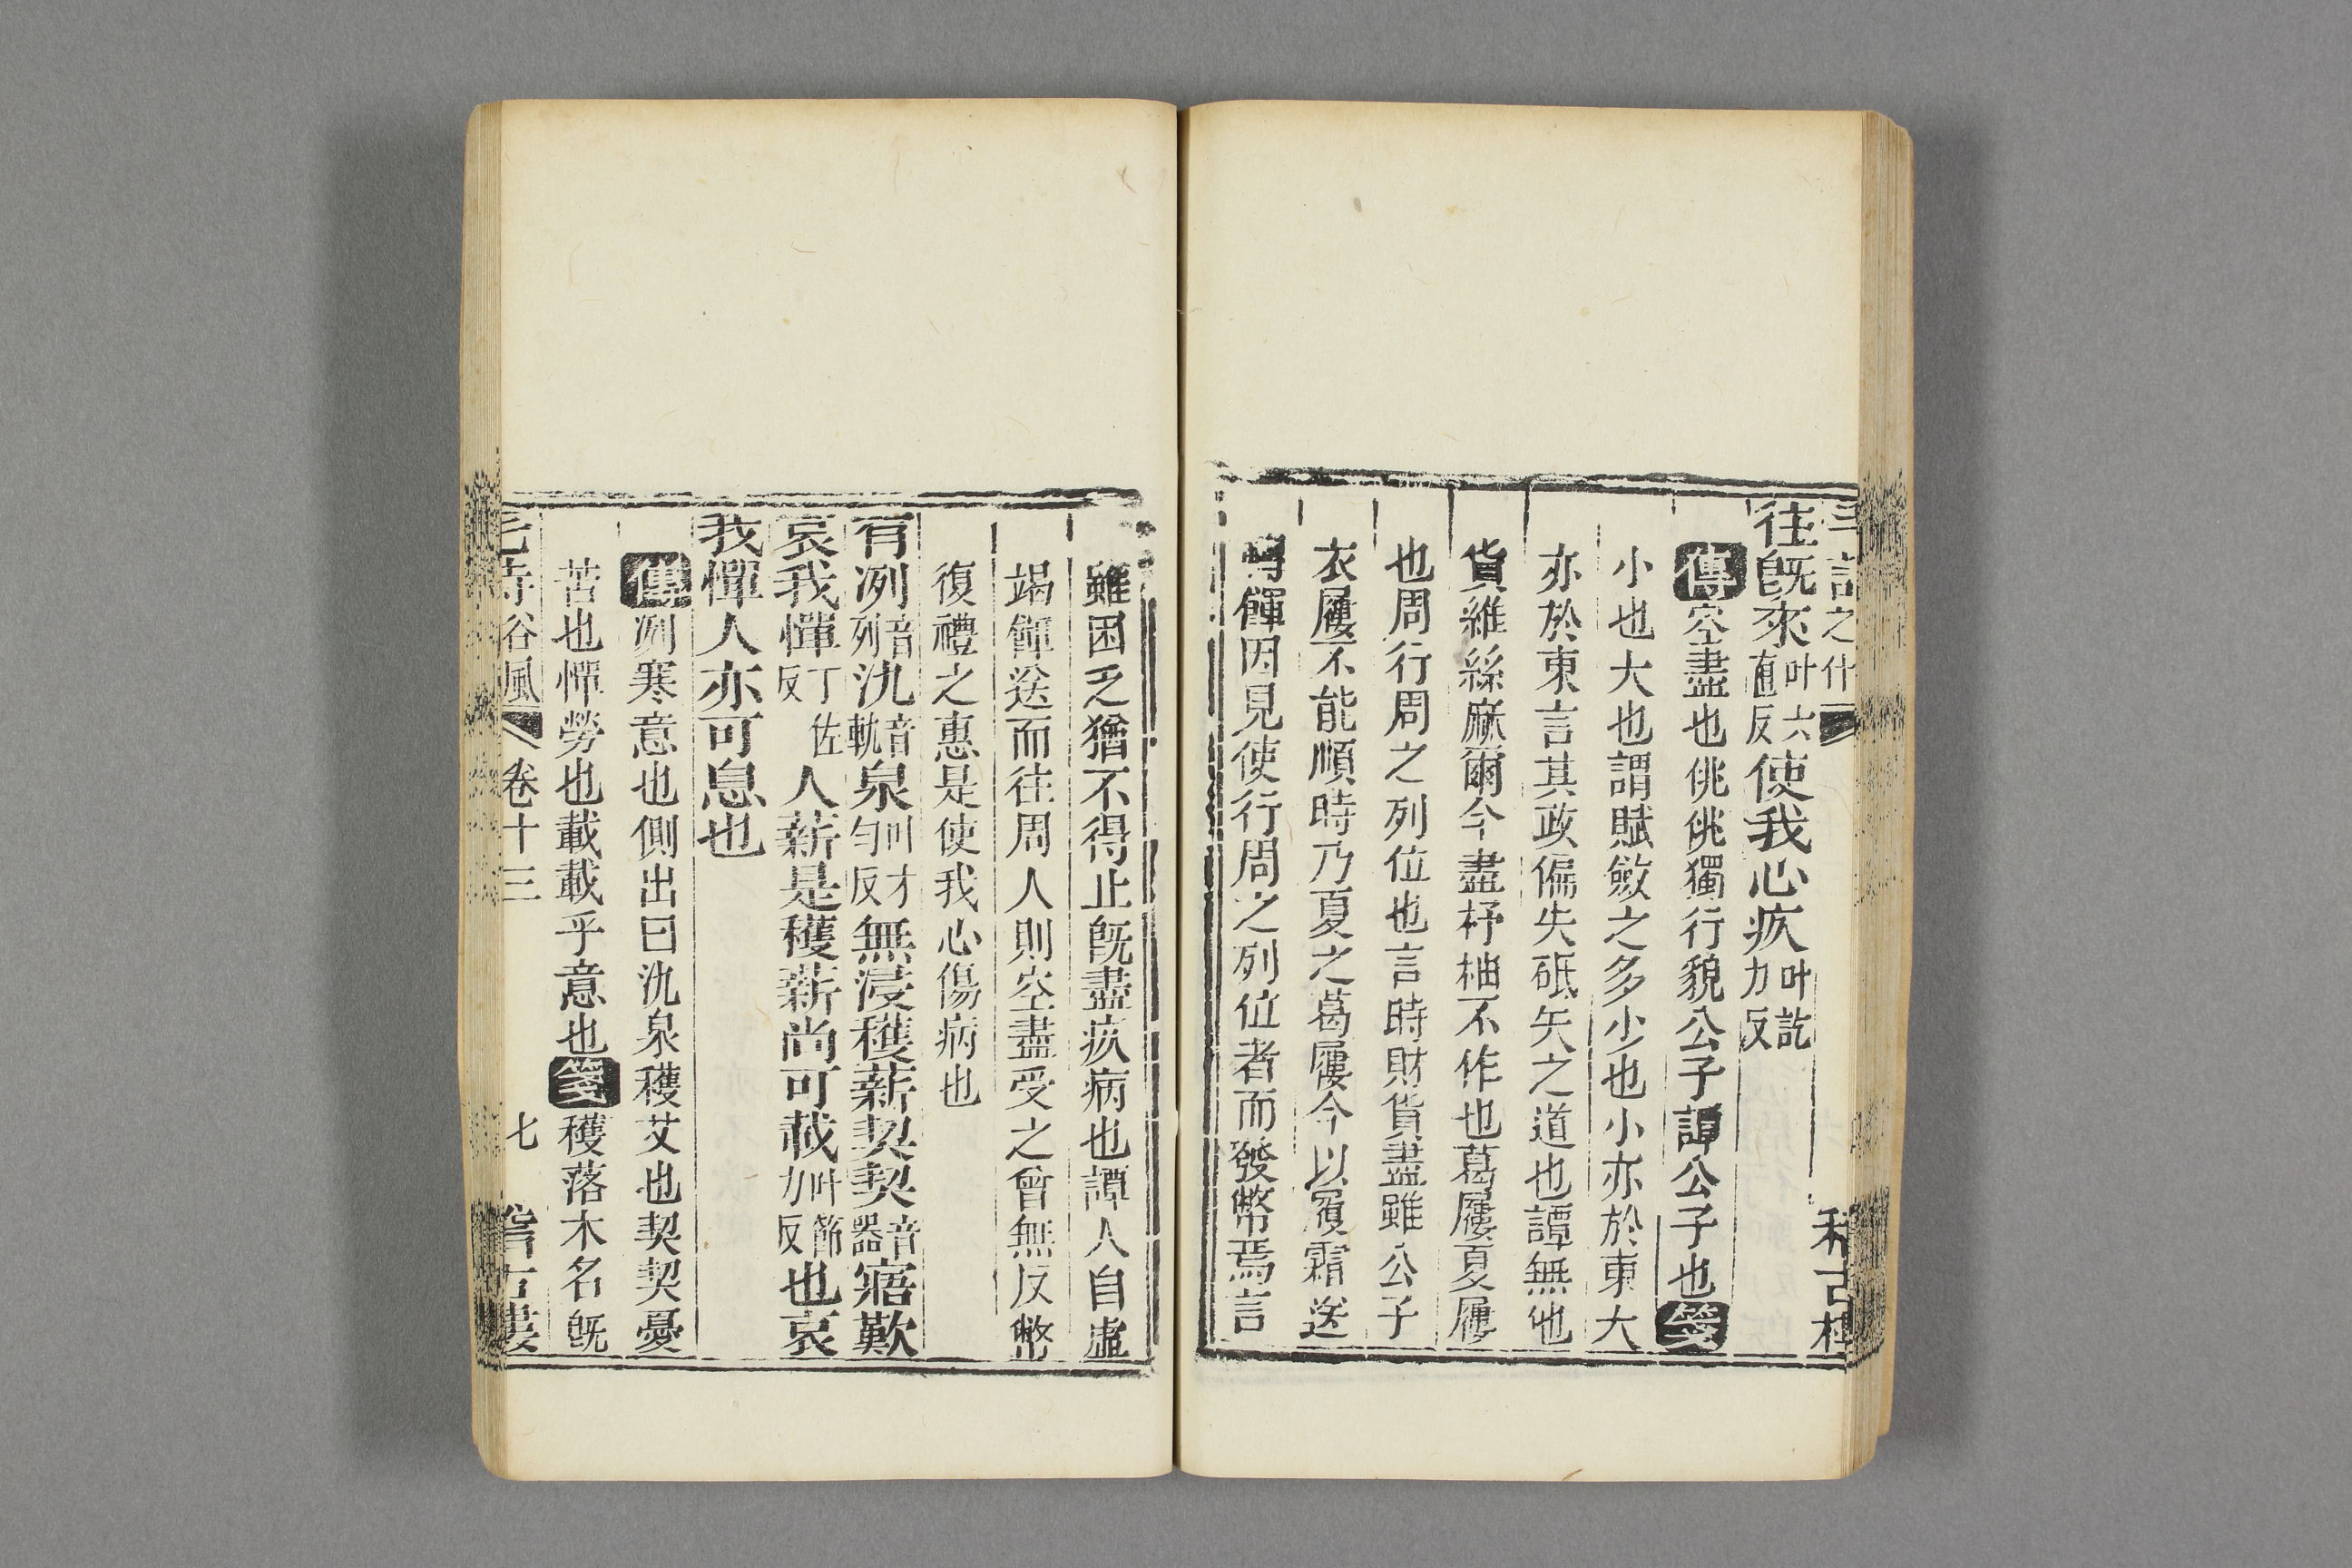 之什
往旣來叶六直反使我心疚叶訖力反
傳空盡也佻佻獨行貌公子譚公子也箋
小也大也謂賦斂之多少也小亦於東大
亦於東言其政偏失砥矢之道也譚無他
貨維絲麻爾今盡杼柚不作也葛屨夏屨
也周行周之列位也言時財貨盡雖公子
衣屨不能順時乃夏之葛屨今以履霜送
餫因見使行周之列位者而發幣焉言
雖困乏猶不得止旣盡疚病也譚人自虛
竭餫送而往周人則空盡受之曾無反幣
復禮之惠是使我心傷病也
有冽音列氿音軌泉叶才勻反無浸穫薪契契音器寤歎
哀我憚丁佐反人薪是穫薪尚可載叶節力反也哀
我憚人亦可息也
傳冽寒意也側出曰氿泉穫艾也契契憂
苦也憚勞也載載乎意也箋穫落木名旣
谷風 卷十三 七